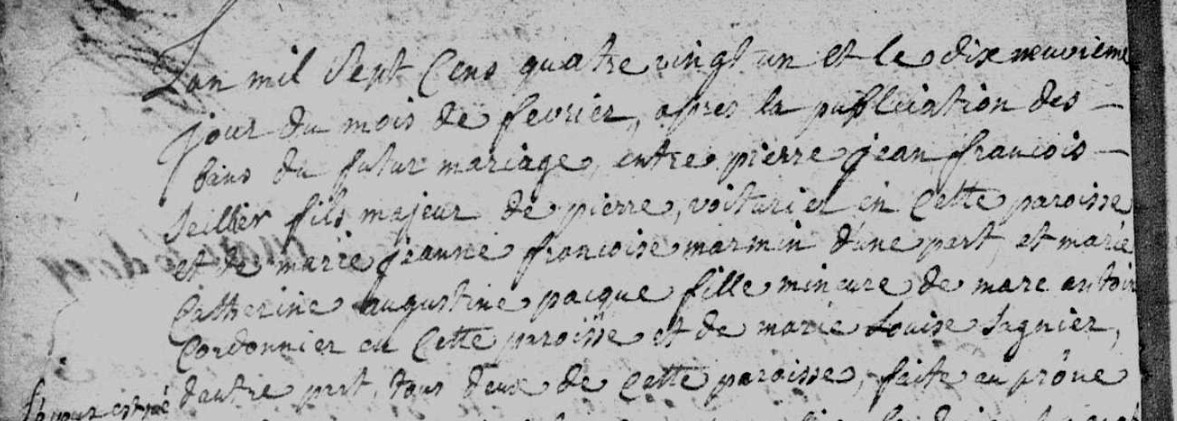 Lan mil Sept Cens quatre vingt un et le dix neuvieme
jour du mois de fevrier, apres la publication des
bans du futur mariage, entre pierre jean francois
Seillier fils majeur de pierre, voiturier en Cette paroisse
et de marie jeanne francoise marmin d'une part, et marie
Catherine augustine pacque fille mineure de marc antoin
Cordonnier en Cette paroisse et de marie Louise Sagnier,
dautre part, tous deux de Cette paroisse, faite au prône